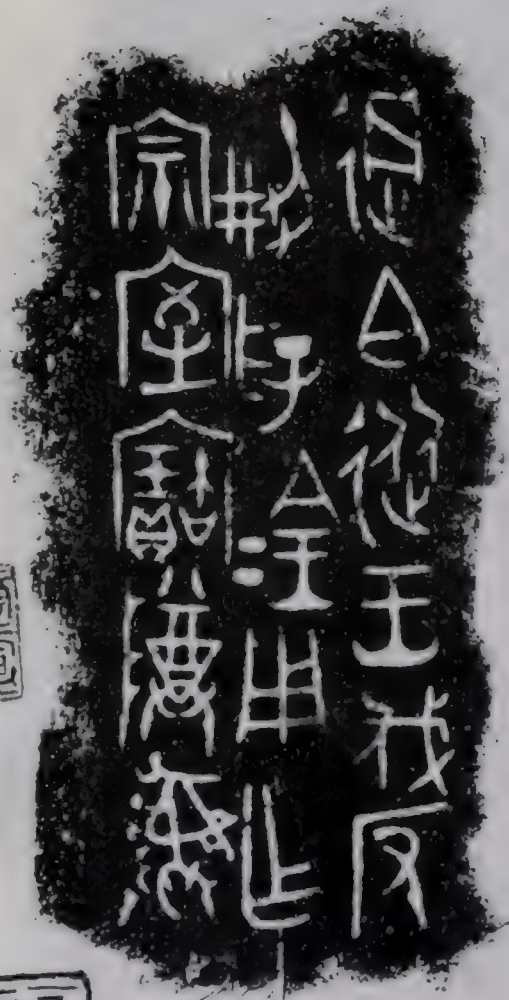 過白從王伐反
荊孚金用乍
宗室寶尊彝